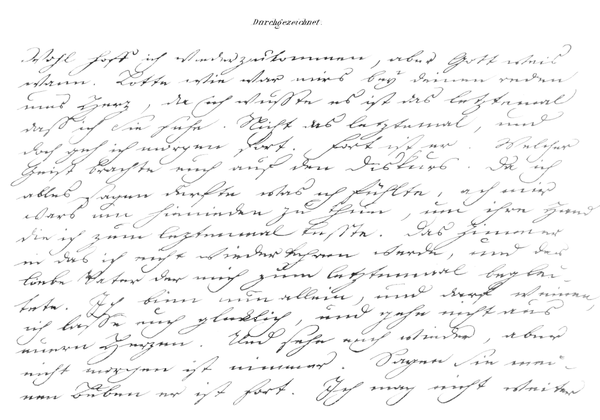 Durchgezeichnet.
Wohl hoff ich wiederzukommen, aber Gott weis
wann. Lotte wie war mirs bey deinen reden
ums Herz, da ich wusste es ist das letztemal
dass ich Sie sehe. Nicht das letztemal, und
doch geh ich morgen fort. Fort ist er. Welcher
Geist brachte euch auf den Diskurs. Da ich
alles sagen durfte was ich fühlte, ach mir
wars um hienieden zu thun, um ihre Hand
die ich zum leztenmal küsste. Das Zimmer
in das ich nicht wiederkehren werde, und der
liebe Vater der mich zum letztenmal beglei-
tete. Ich binn nun allein, und darf weinen,
ich lasse euch glücklich, und gehe nicht aus
euern Herzen. Und sehe euch wieder, aber
nicht morgen ist nimmer. Sagen Sie mei-
nen Buben er ist fort. Ich mag nicht weiter